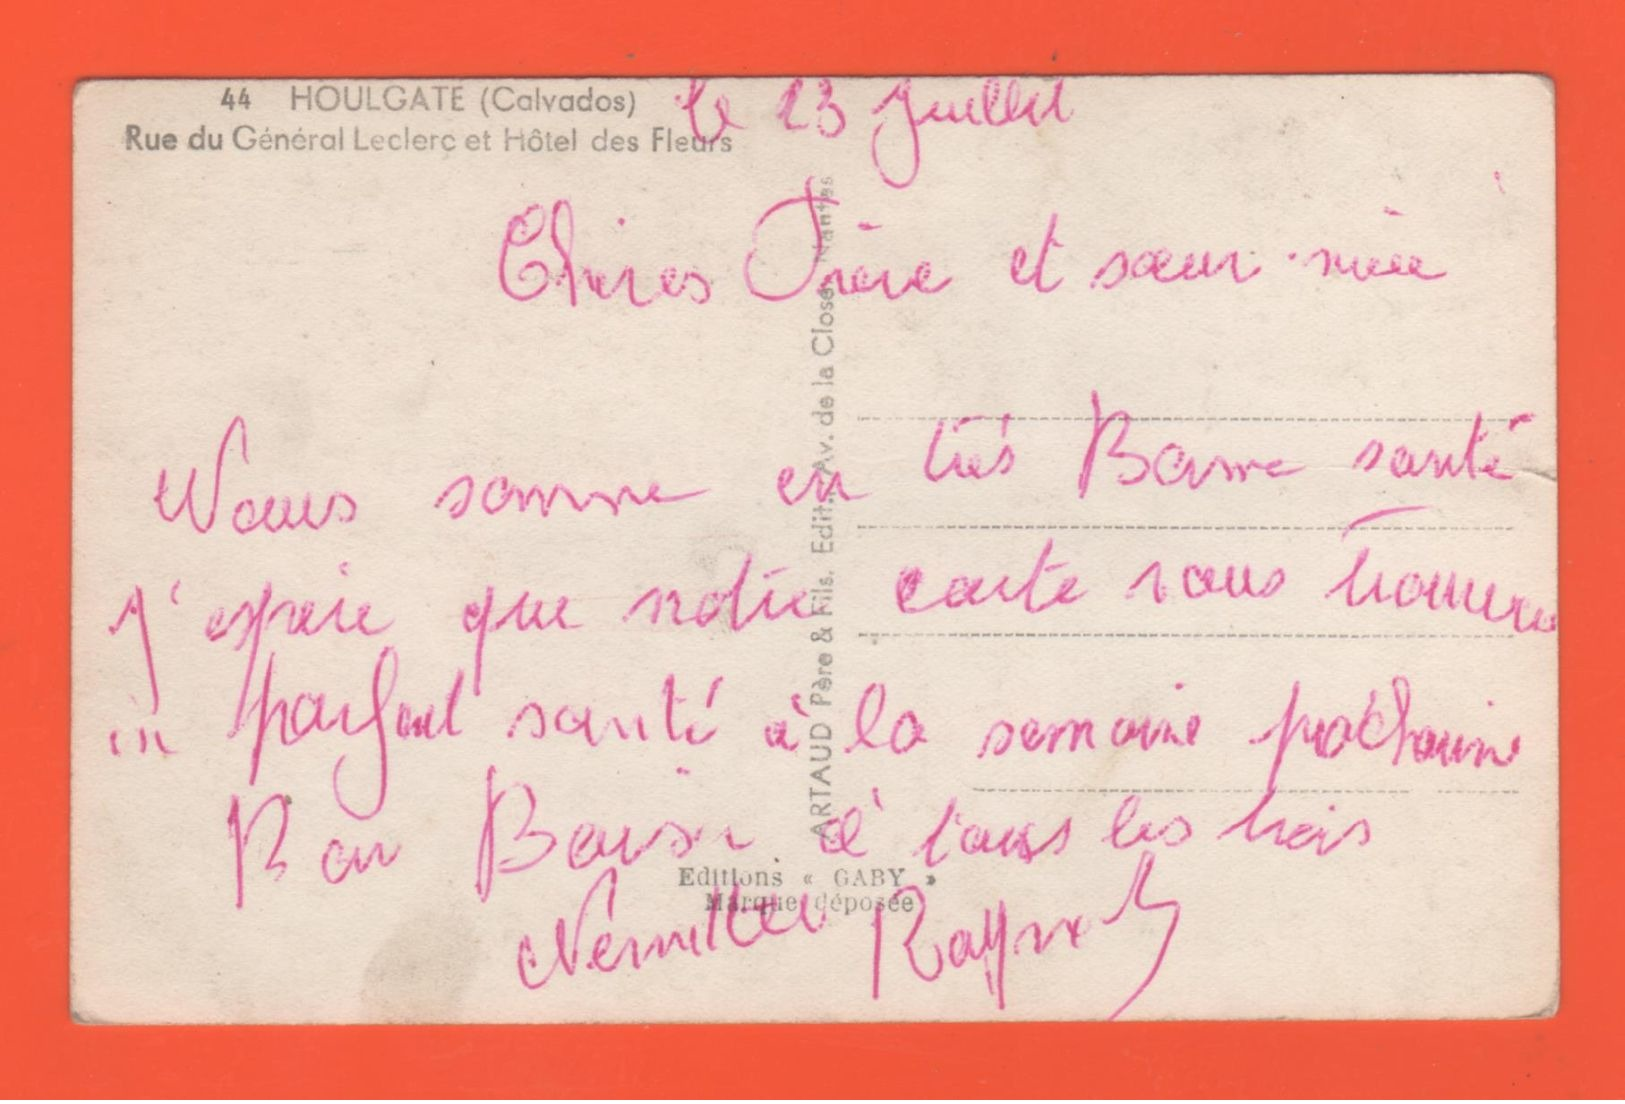 44 HOULGATE (Calvados)
Rue du Général Leclerc et Hôtel des Fleurs
le 23 Juillet
Chères Frère et sœur nièce
Nous somme en très Bonne santé
J'espère que notre carte vous trouvera
in parfait santé à la semaine prochaine
Bon Baisr à tous les trois
Raymond
ARTAUD Père & Fils. Edit. Av. de la Close, Nantes
Editions « GABY »
Marque déposée